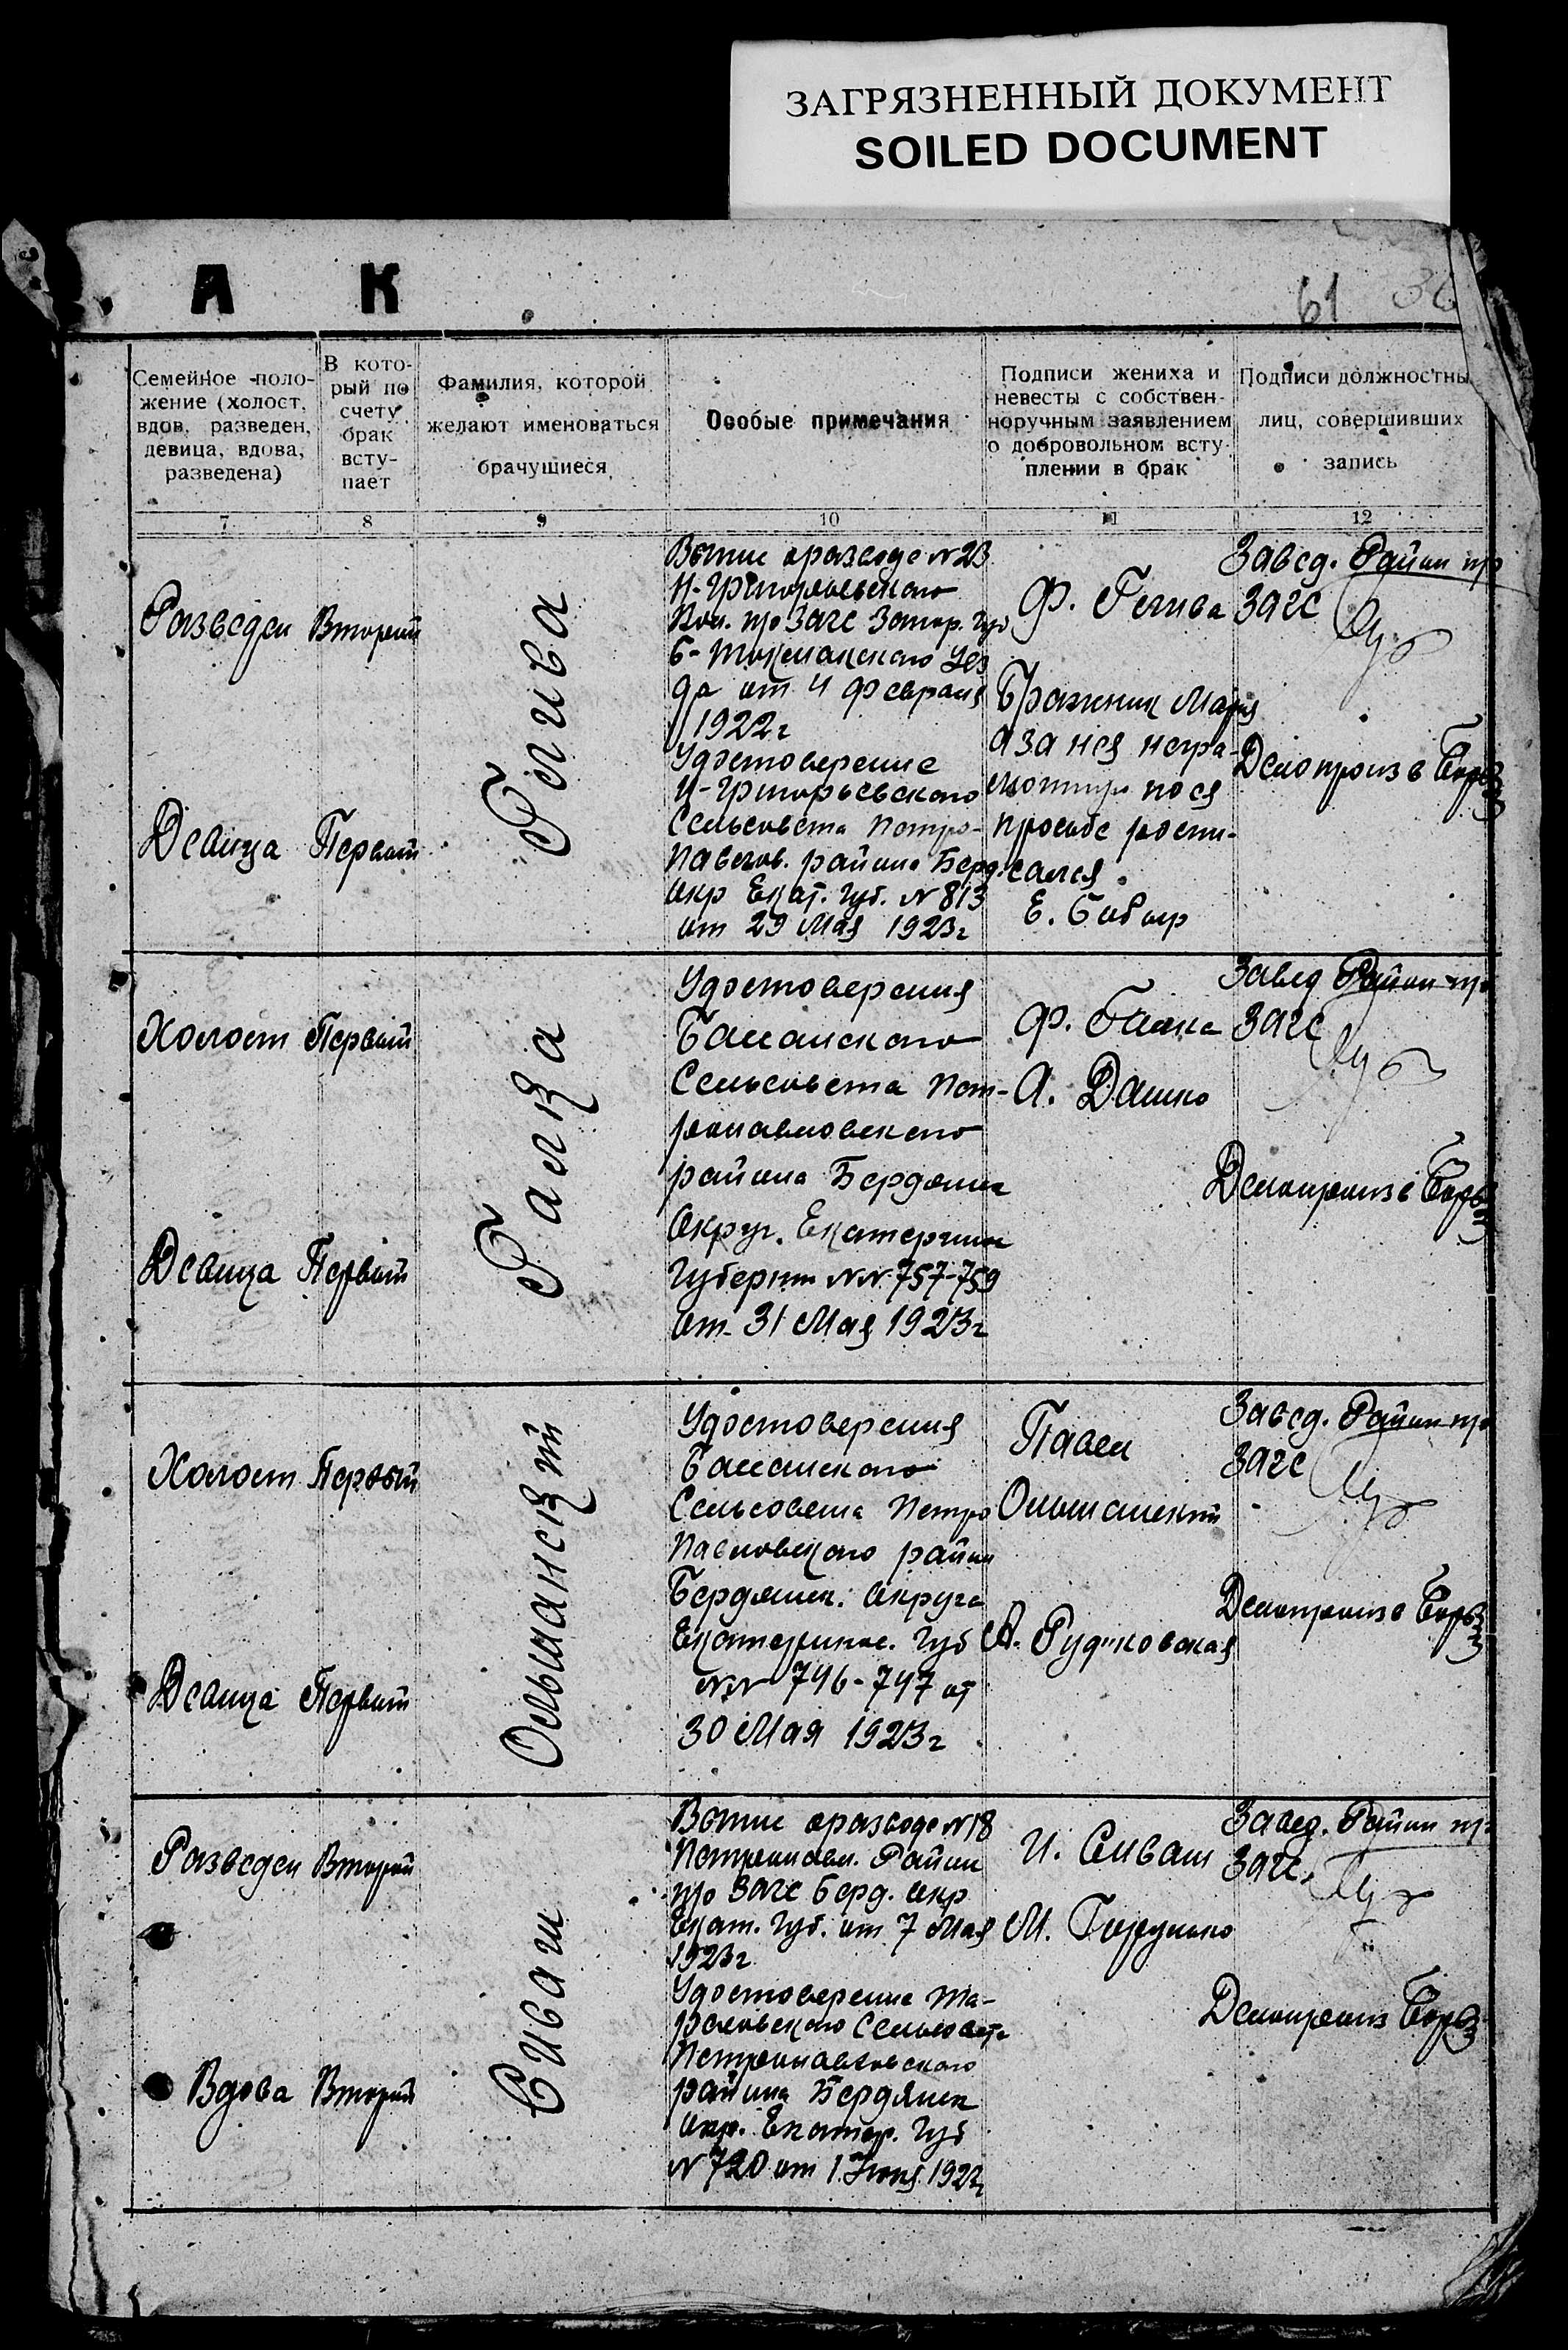 ЗАГРЯЗНЕННЫЙ ДОКУМЕНТ
SOILED DOCUMENT
А К
61 36
Семейное поло-
жение (холост,
вдов, разведен,
девица, вдова,
разведена)
В кото-
рый по
счету
брак
всту-
пает
Фамилия, которой
желают именоваться
брачущиеся
Особые примечания
Подписи жениха и
невесты с собствен-
норучным заявлением
о добровольном всту-
плении в брак
Подписи должностны
лиц, совершивших
запись
7 8 9 10 11 12
Разведен Второй
Девица Первый
Гелива
о разводе N 23
Н-Григорьевского
п/о Загс Запор. Губ
Б-Токмакского Уез
да от 4 Февраля
1922 г
Удостоверение
Н-Григорьевского
Сельсовета Петро-
Павлов. района Берд.
окр Екат. Губ. N 813
от 29 Мая 1923 г
Ф. Гелива
Бражник Мария
а за нея негра-
мотную по ея
просьбе роспи-
сался
Е. Бабыр
Завед. Район п/о
ЗАГС
Делопроизв
Холост Первый
Девица Первый
Галка
Удостоверения
Басанского
Сельсовета Пет-
ропавловского
района Бердянск
Округ. Екатерин
Губернии NN 757-759
от 31 Мая 1923 г
Ф. Галка
А. Дашко
Завед Район п/о
ЗАГС
Делопроизв
Холост Первый
Девица Первый
Ольшанский
Удостоверения
Басанского
Сельсовета Петро
Павловского район
Бердянск. Округа
Екатеринос. Губ
NN 746-747 от
30 Мая 1923 г
Павел
Ольшанский
А. Рудиковская
Завед. Район п/о
ЗАГС
Делопроизв
Разведен Второй
Вдова Второй
Сиваш
о разводе N 18
Петропавл. Район
п/о Загс Берд. окр
Екат. Губ. от 7 Мая
1923 г
Удостоверение
Сельсовета
Петропавловского
района Бердянск
окр. Екатер. Губ
N 720 от 1 Июня 1922
И. Сиваш
М.
Завед. Район п/о
ЗАГС
Делопроизв